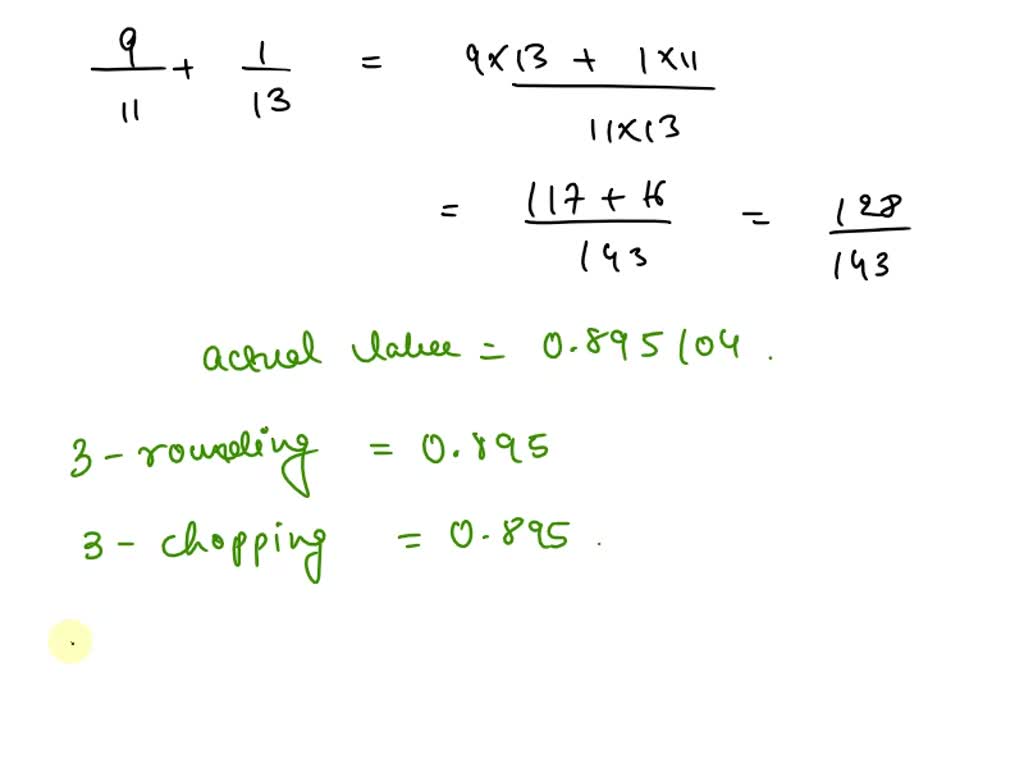 9/11 + 1/13 = 9×13 + 1×11 / 11×13
= 117 + 16 / 143 = 128 / 143
actual value = 0.895104.
3-rounding = 0.895
3-chopping = 0.895.